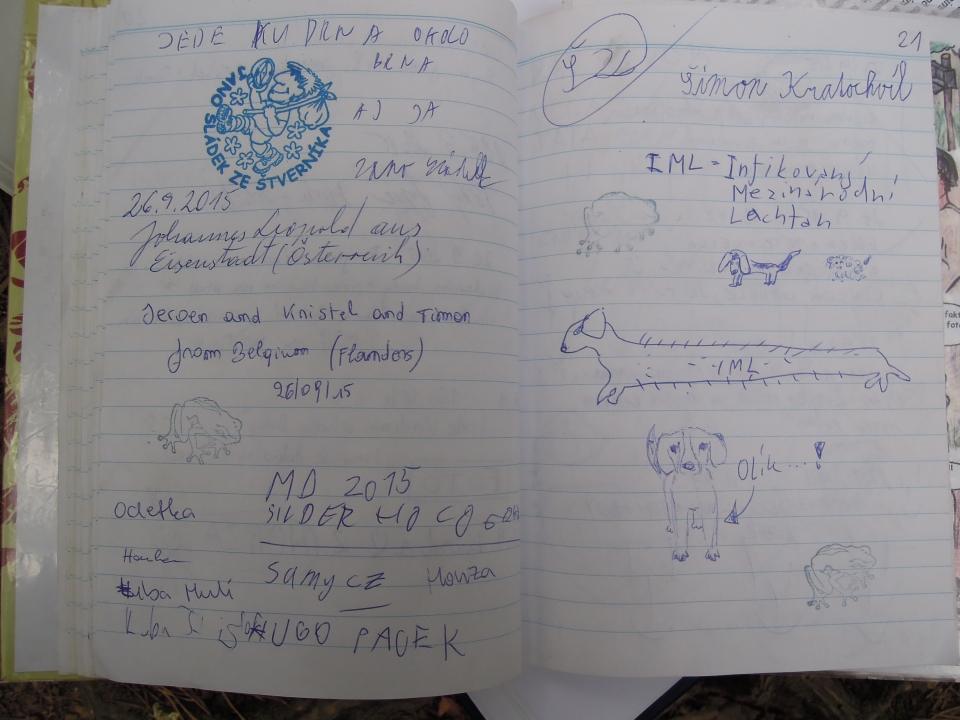 JEDE KUDRNA OKOLO
BRNA
AJ JA
JANO SLÁDEK ZE ŠTVERNÍKA
26.9.2015
Johannes Leopold aus
Eisenstadt (Österreich)
Jeroen and Kristel and Timon
from Belgium (Flanders)
26/09/15
MD 2015
Odetka
Samy CZ Honza
Kuba
HUGO PACEK
21
Šimon Kratochvíl
IML = Infikovaný
Mezinárodní
Lachtan
IML
Olík...!